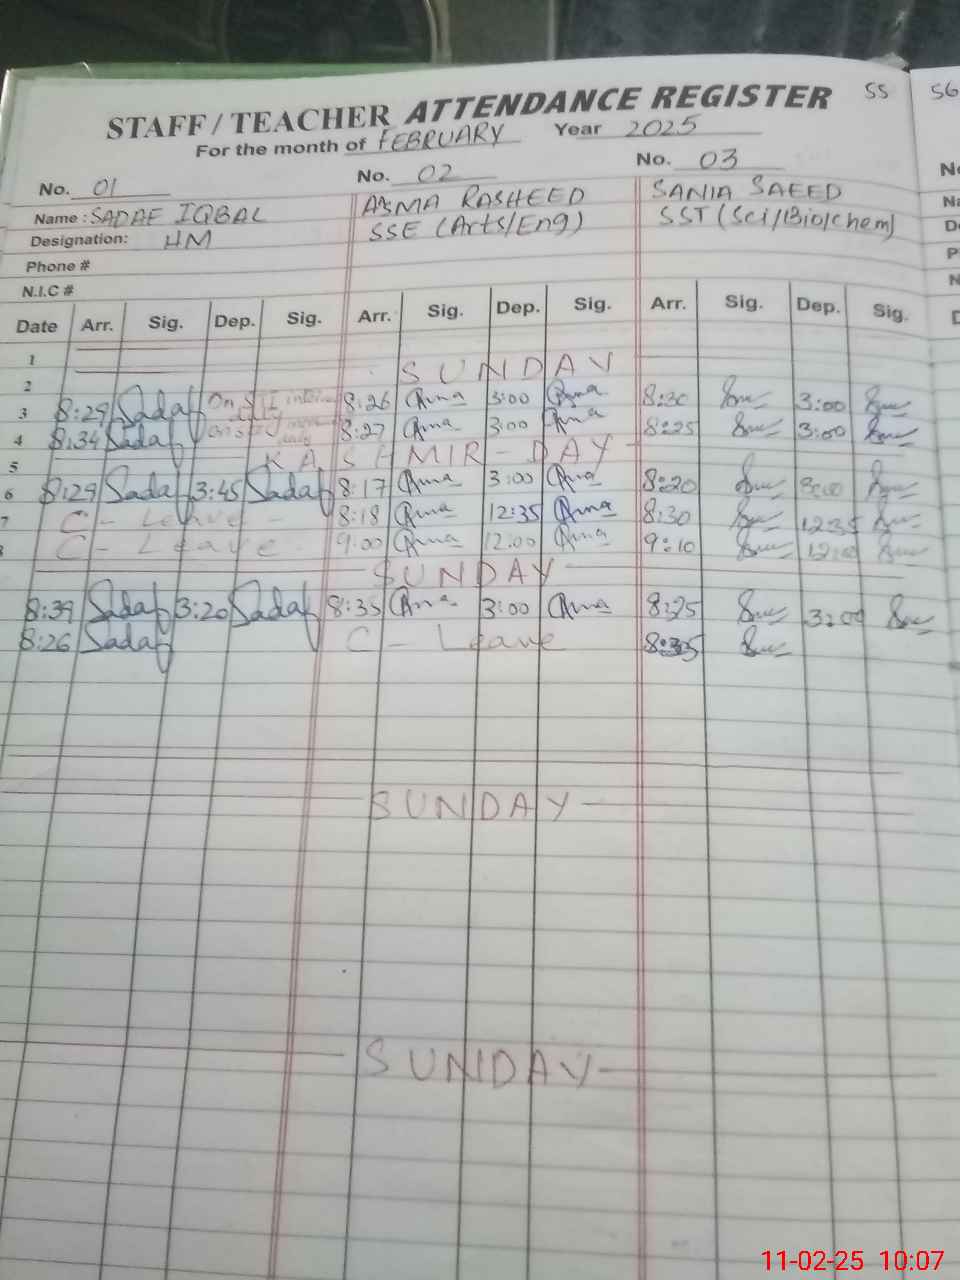 STAFF / TEACHER ATTENDANCE REGISTER 55 56
For the month of FEBRUARY Year 2025
No. 01 No. 02 No. 03
Name : SADAF IQBAL ASMA RASHEED SANIA SAEED
Designation: HM SSE (Arts/Eng) SST (Sci/Bio/chem)
Phone #
N.I.C #
Date Arr. Sig. Dep. Sig. Arr. Sig. Dep. Sig. Arr. Sig. Dep. Sig.
1
2 SUNDAY
3 8:29 Sadaf On 8:26 3:00 8:30 3:00
4 8:34 Sadaf 8:27 3:00 8:25 3:00
5 KASHMIR - DAY
6 8:29 Sadaf 3:45 Sadaf 8:17 3:00 8:20 3:00
7 C - Leave - 8:18 12:35 8:30 12:35
8 C - Leave 9:00 12:00 9:10 12:00
SUNDAY
8:39 Sadaf 3:20 Sadaf 8:35 3:00 8:25 3:00
8:26 Sadaf C - Leave
SUNDAY
SUNDAY
11-02-25 10:07